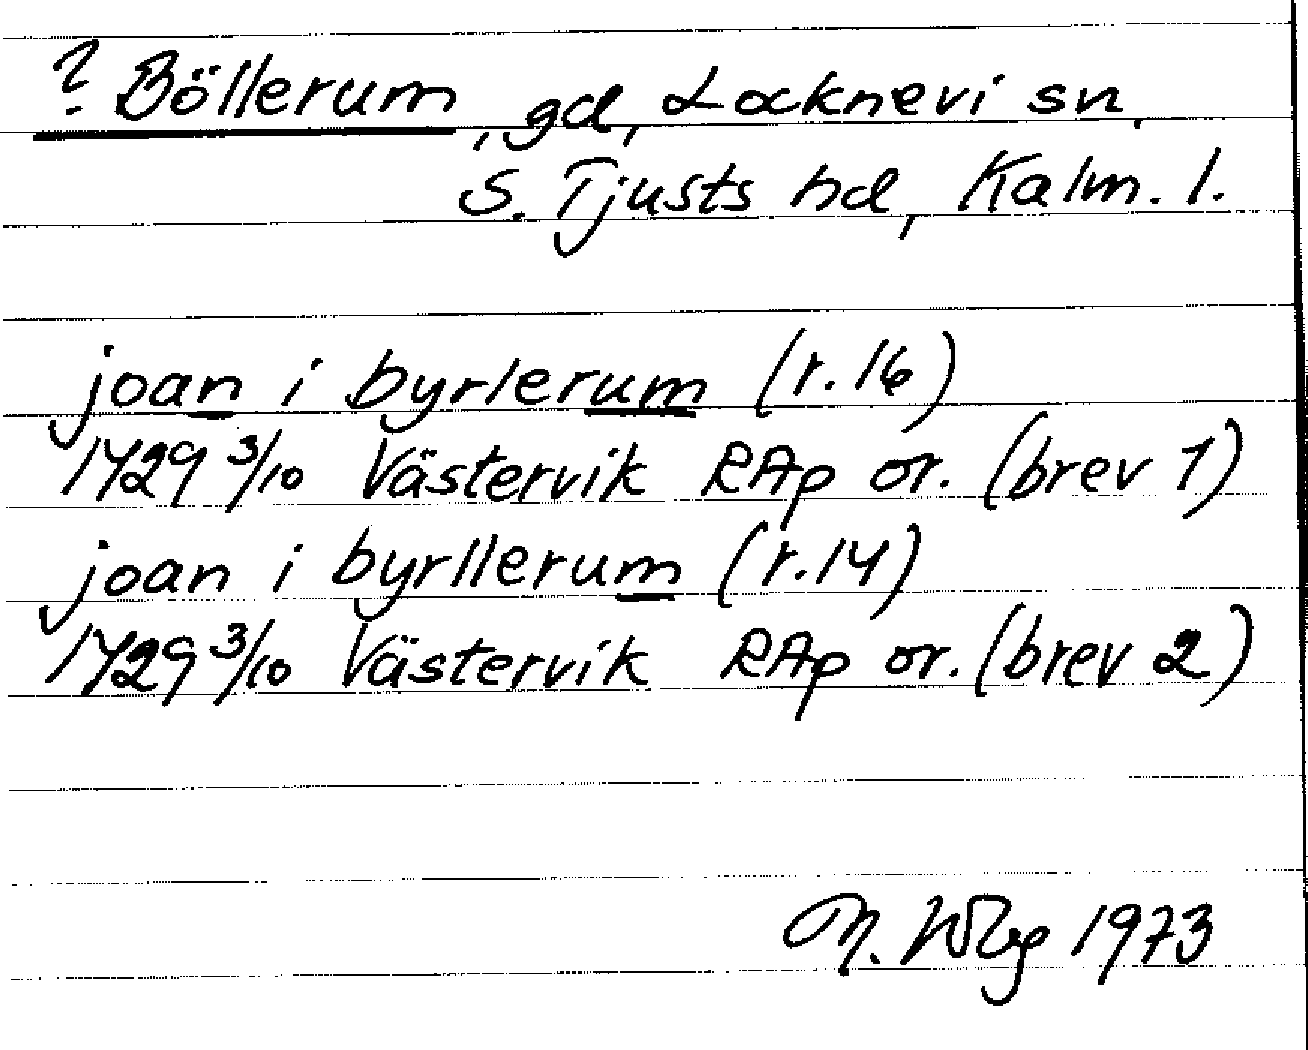 ? Böllerum, gd, Locknevi sn,
S. Tjusts hd, Kalm. l.
joan i byrlerum (r. 16)
1429 3/10 Västervik RAp or. (brev 1)
joan i byrllerum (r. 14)
1429 3/10 Västervik RAp or. (brev 2)
1973